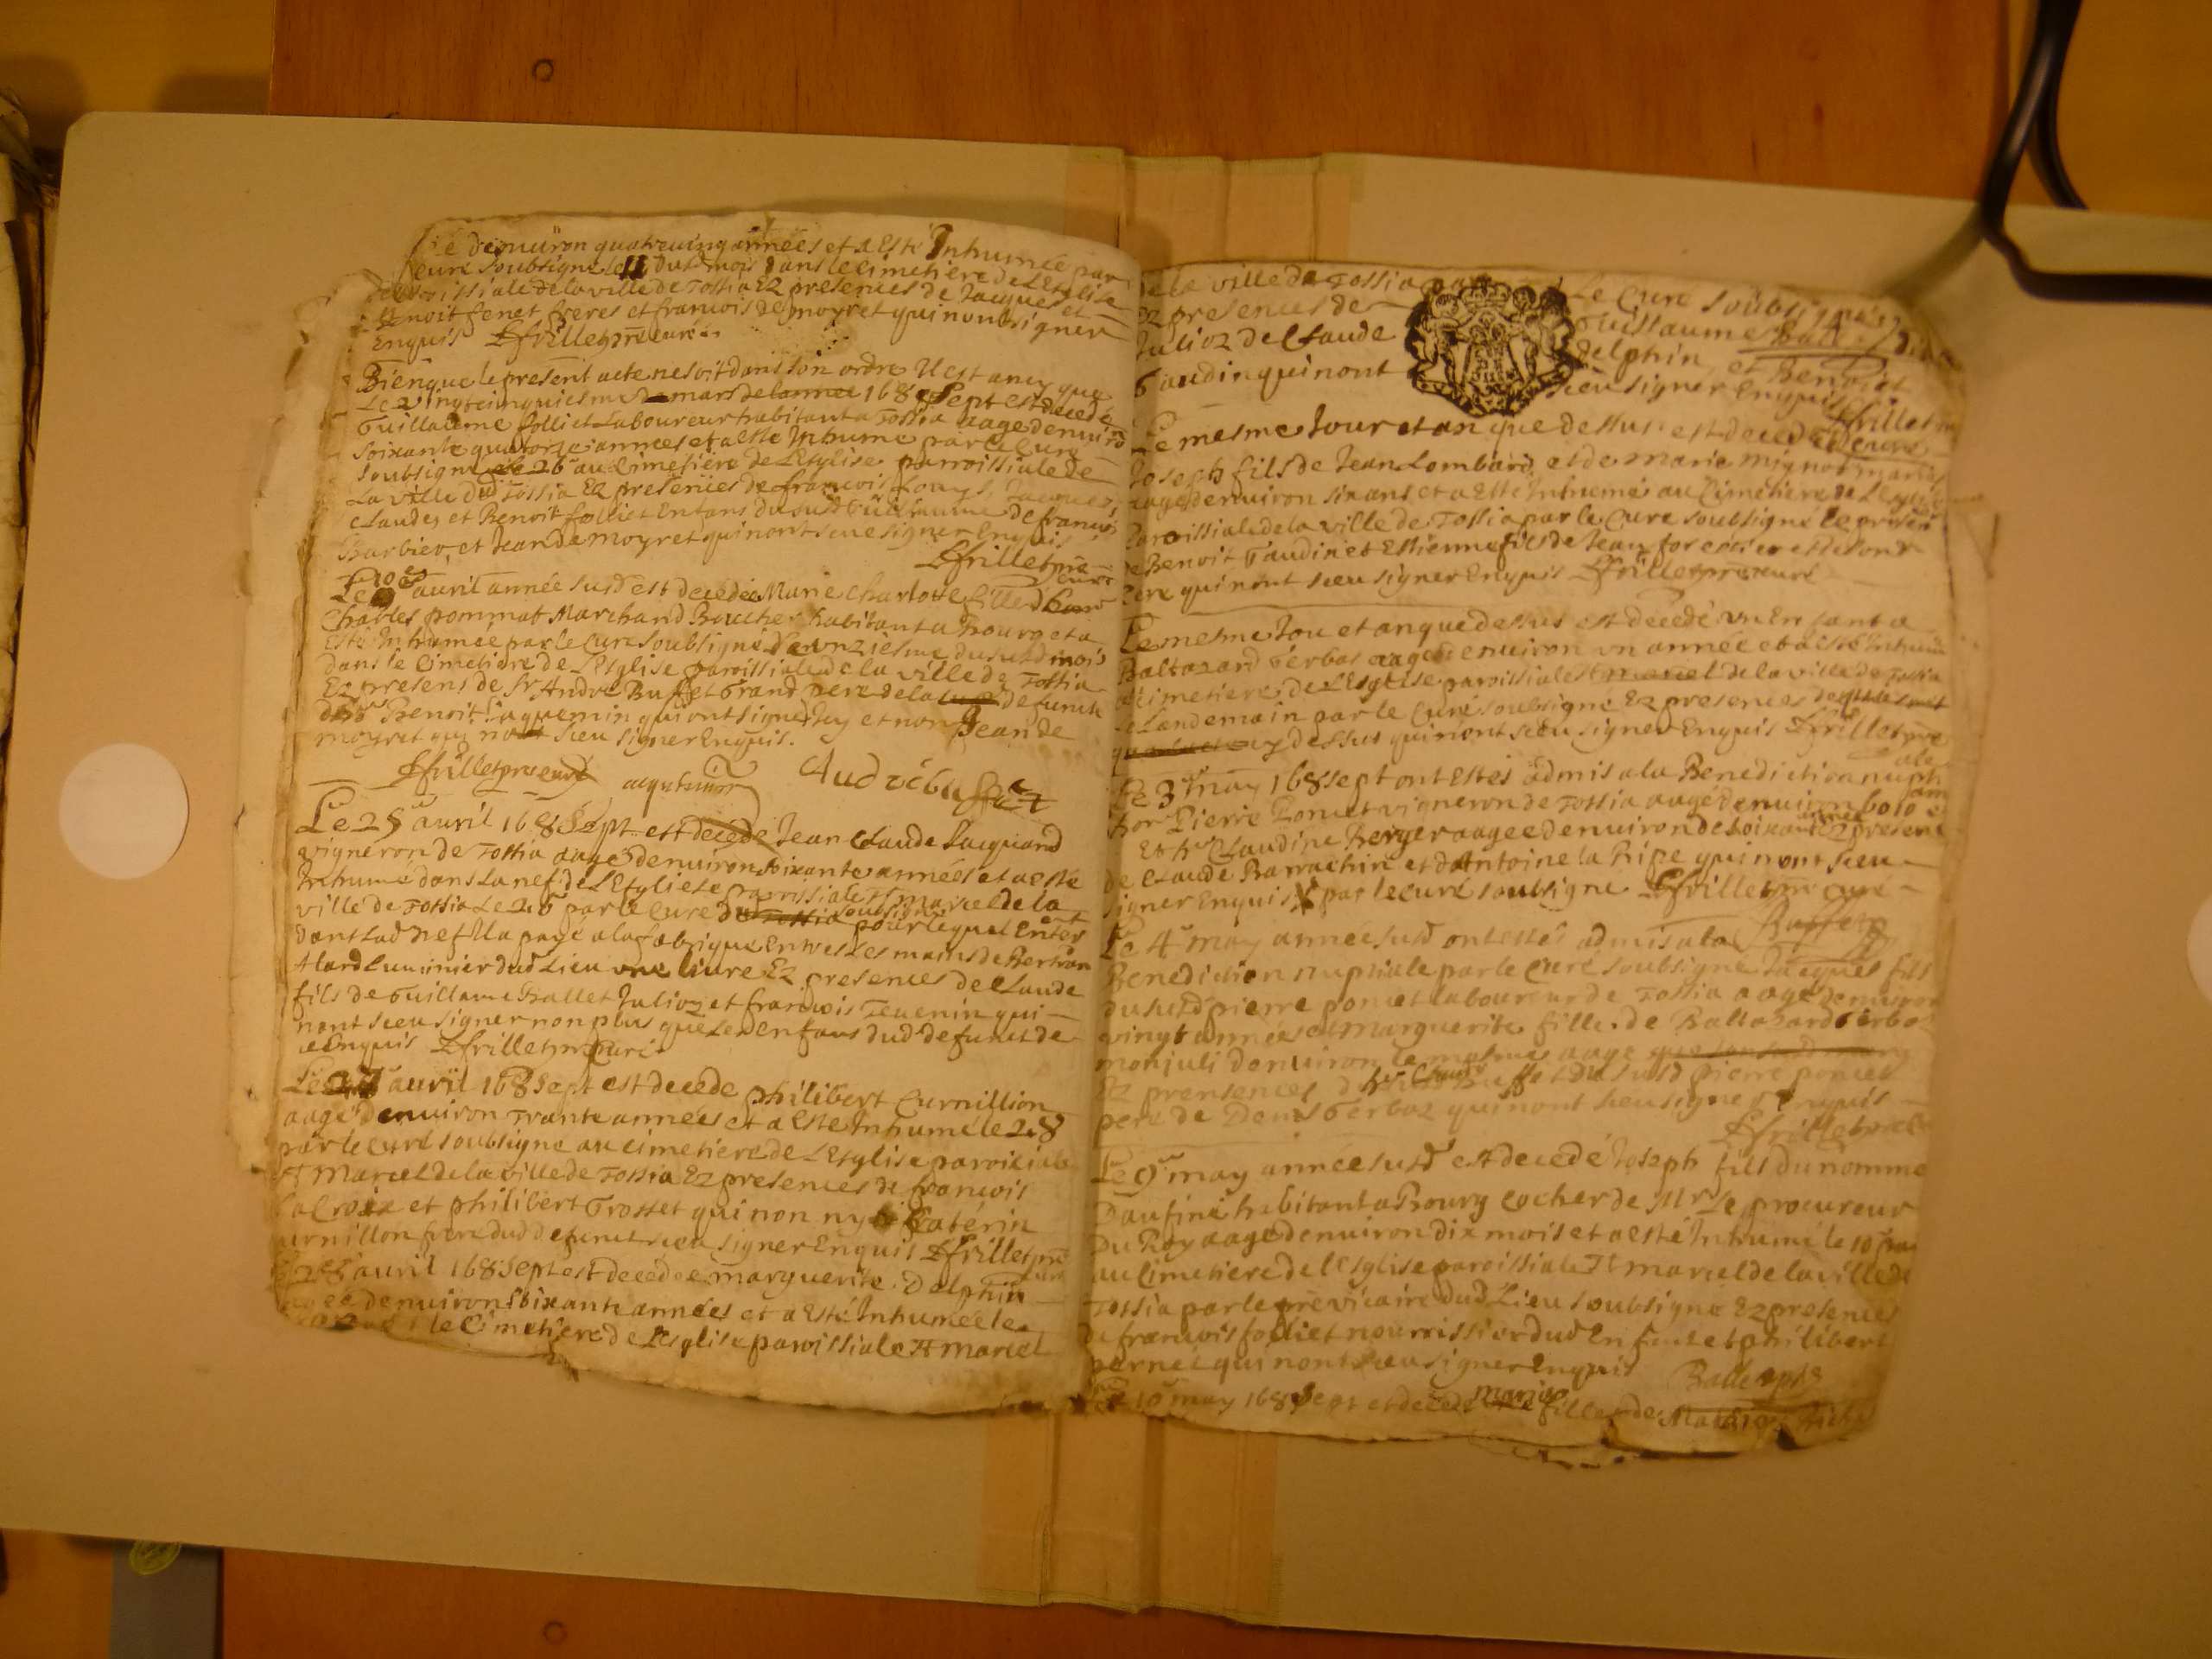 denuiron quatrevingt années et a Esté Inhumée par
Curé soubsigné le 11 dud mois dans le Cimetiere de L'Esglise
parroissiale de la ville de Tossia Ez presences de Jacques et
Benoit fenet freres et francois de moyret qui nont signer
Enquis Dfrillet pre curé
Bien que le present acte ne soit dans son ordre Il est ancy que
Le Vingtcinquiesme mars de lannee 168 Sept est decedé
Guillaume folliet Laboureur habitant a Tossia aage denuiron
soixante quatorze annees et a esté Inhumé par le Curé
soubsigné le 26 au Cimetiere de L'Esglise parroissiale de
La ville dud Tossia Ez presences de francois, Louys, Jacques,
Claude, et Benoit folliet Enfans du susd Guillaume de francois
Barbier et Jean de Moyret qui nont sceu signer Enquis
Dfrillet pre curé
Le 10e auril année susd est decedée Marie Charlotte fille d
Charles pommat Marchand Boucher habitant a Bourg et a
Esté Inhumée par le Curé soubsigné Le unziesme du susd mois
dans le Cimetiere de L'Esglise parroissiale de la ville de Tossia
Ez presens de Sr André Buffet Grand pere de la defuncte
de Benoit Jaquemin qui ont signé et non Jean de
moyret qui nont sceu signer Enquis.
Dfrillet pre curé
Le 25 auril 168 Sept est decedé Jean Claude Pacquand
vigneron de Tossia aagé denuiron soixante années et a esté
Inhumé dans la nef de L'Esglise parroissiale St Marcel de la
ville de Tossia Le 26 par le Curé soubsigné pour lequel Enter
dant lad nef Il a payé a la fabrique Entre Les mains de Bertran
Alard Luminier dud Lieu une liure Ez presences de Claude
fils de Guillame Ballet Julioz et francois Teuenin qui
nont sceu signer non plus que Les Enfans dud defunct de
ce Enquis Dfrillet pre Curé
Le 27 auril 168 Sept est decede philibert Curnillion
aagé denuiron trante années et a Esté Inhumé le 28
par le Curé soubsigné au Cimetiere de L'Esglise paroissiale
St Marcel de la ville de Tossia Ez presences de francois
la Croix et philibert Grosset qui non ny Caterin
Curnillon frere dud defunct sceu signer Enquis Dfrillet pre
curé
auril 168 Sept est decedee marguerite Delphin
aagée denuiron soixante années et a Esté Inhumée le
le Cimetiere de L'esglise paroissiale St marcel
de la ville de Tossia par Le Curé soubsigné
Ez presences de Guillaume Ballet
Julioz de Claude delphin, et Benoist
Gaudin qui nont sceu signer Enquis
Dfrillet pre curé
Le mesme Jour et an que dessus est decedé
Joseph fils de Jean Lombard, et de marie mignot mariés
aagé denuiron six ans et a Esté Inhumé au Cimetiere de L'esglise
Paroissiale de la ville de Tossia par le Curé soubsigné Ez presen
de Benoit Gaudin et Estienne fils de Jean et de son
Pere qui nont sceu signer Enquis Dfrillet pre curé
Le mesme Jou et an que dessus est decedé vn Enfant a
Baltazard Gerbos aagé denuiron vn année et a esté Inhumé
au Cimetiere de L'Esglise paroissiale St marcel de la ville de Tossia
Le Landemain par le Curé soubsigné Ez presences
cy dessus qui nont sceu signer Enquis Dfrillet pre
Le 3e may 168 sept ont Estés admis a la Benediction nuptiale
hon Pierre Poncet vigneron de Tossia aagé denuiron
Et hne Claudine Berger aagee denuiron de soixante année Ez presence
de Claude Barrachin et d'Antoine la Ripe qui nont sceu
signer Enquis par le curé soubsigne Dfrillet pre curé
Buffet
Le 4e may année susd ont estés admis a la
Benediction nuptiale par le Curé soubsigné Jacques fils
du susd pierre poncet laboureur de Tossia aagé denuiron
vingt années et Marguerite fille de Baltazard Gerboz
monjuli denuiron le mesme aage
Ez prensences de hon Claude Buffet du susd pierre poncet
pere de Denis Gerboz qui nont sceu signer Enquis
Dfrillet pre curé
Le 9e may année susd est decedé Joseph fils du nomme
Daufiné habitant a Bourg Cocher de Mr Le procureur
Du Roy aagé denuiron dix mois et a esté Inhumé le 10
au Cimetiere de l'Esglise paroissiale St marcel de la ville de
Tossia par le pre vicaire dud Lieu soubsigné Ez presences
de francois folliet nourrissier dud Enfant et philibert
pernet qui nont sceu signer Enquis
Le 10e may 168 Sept est decedé Marie fille de Mathieu